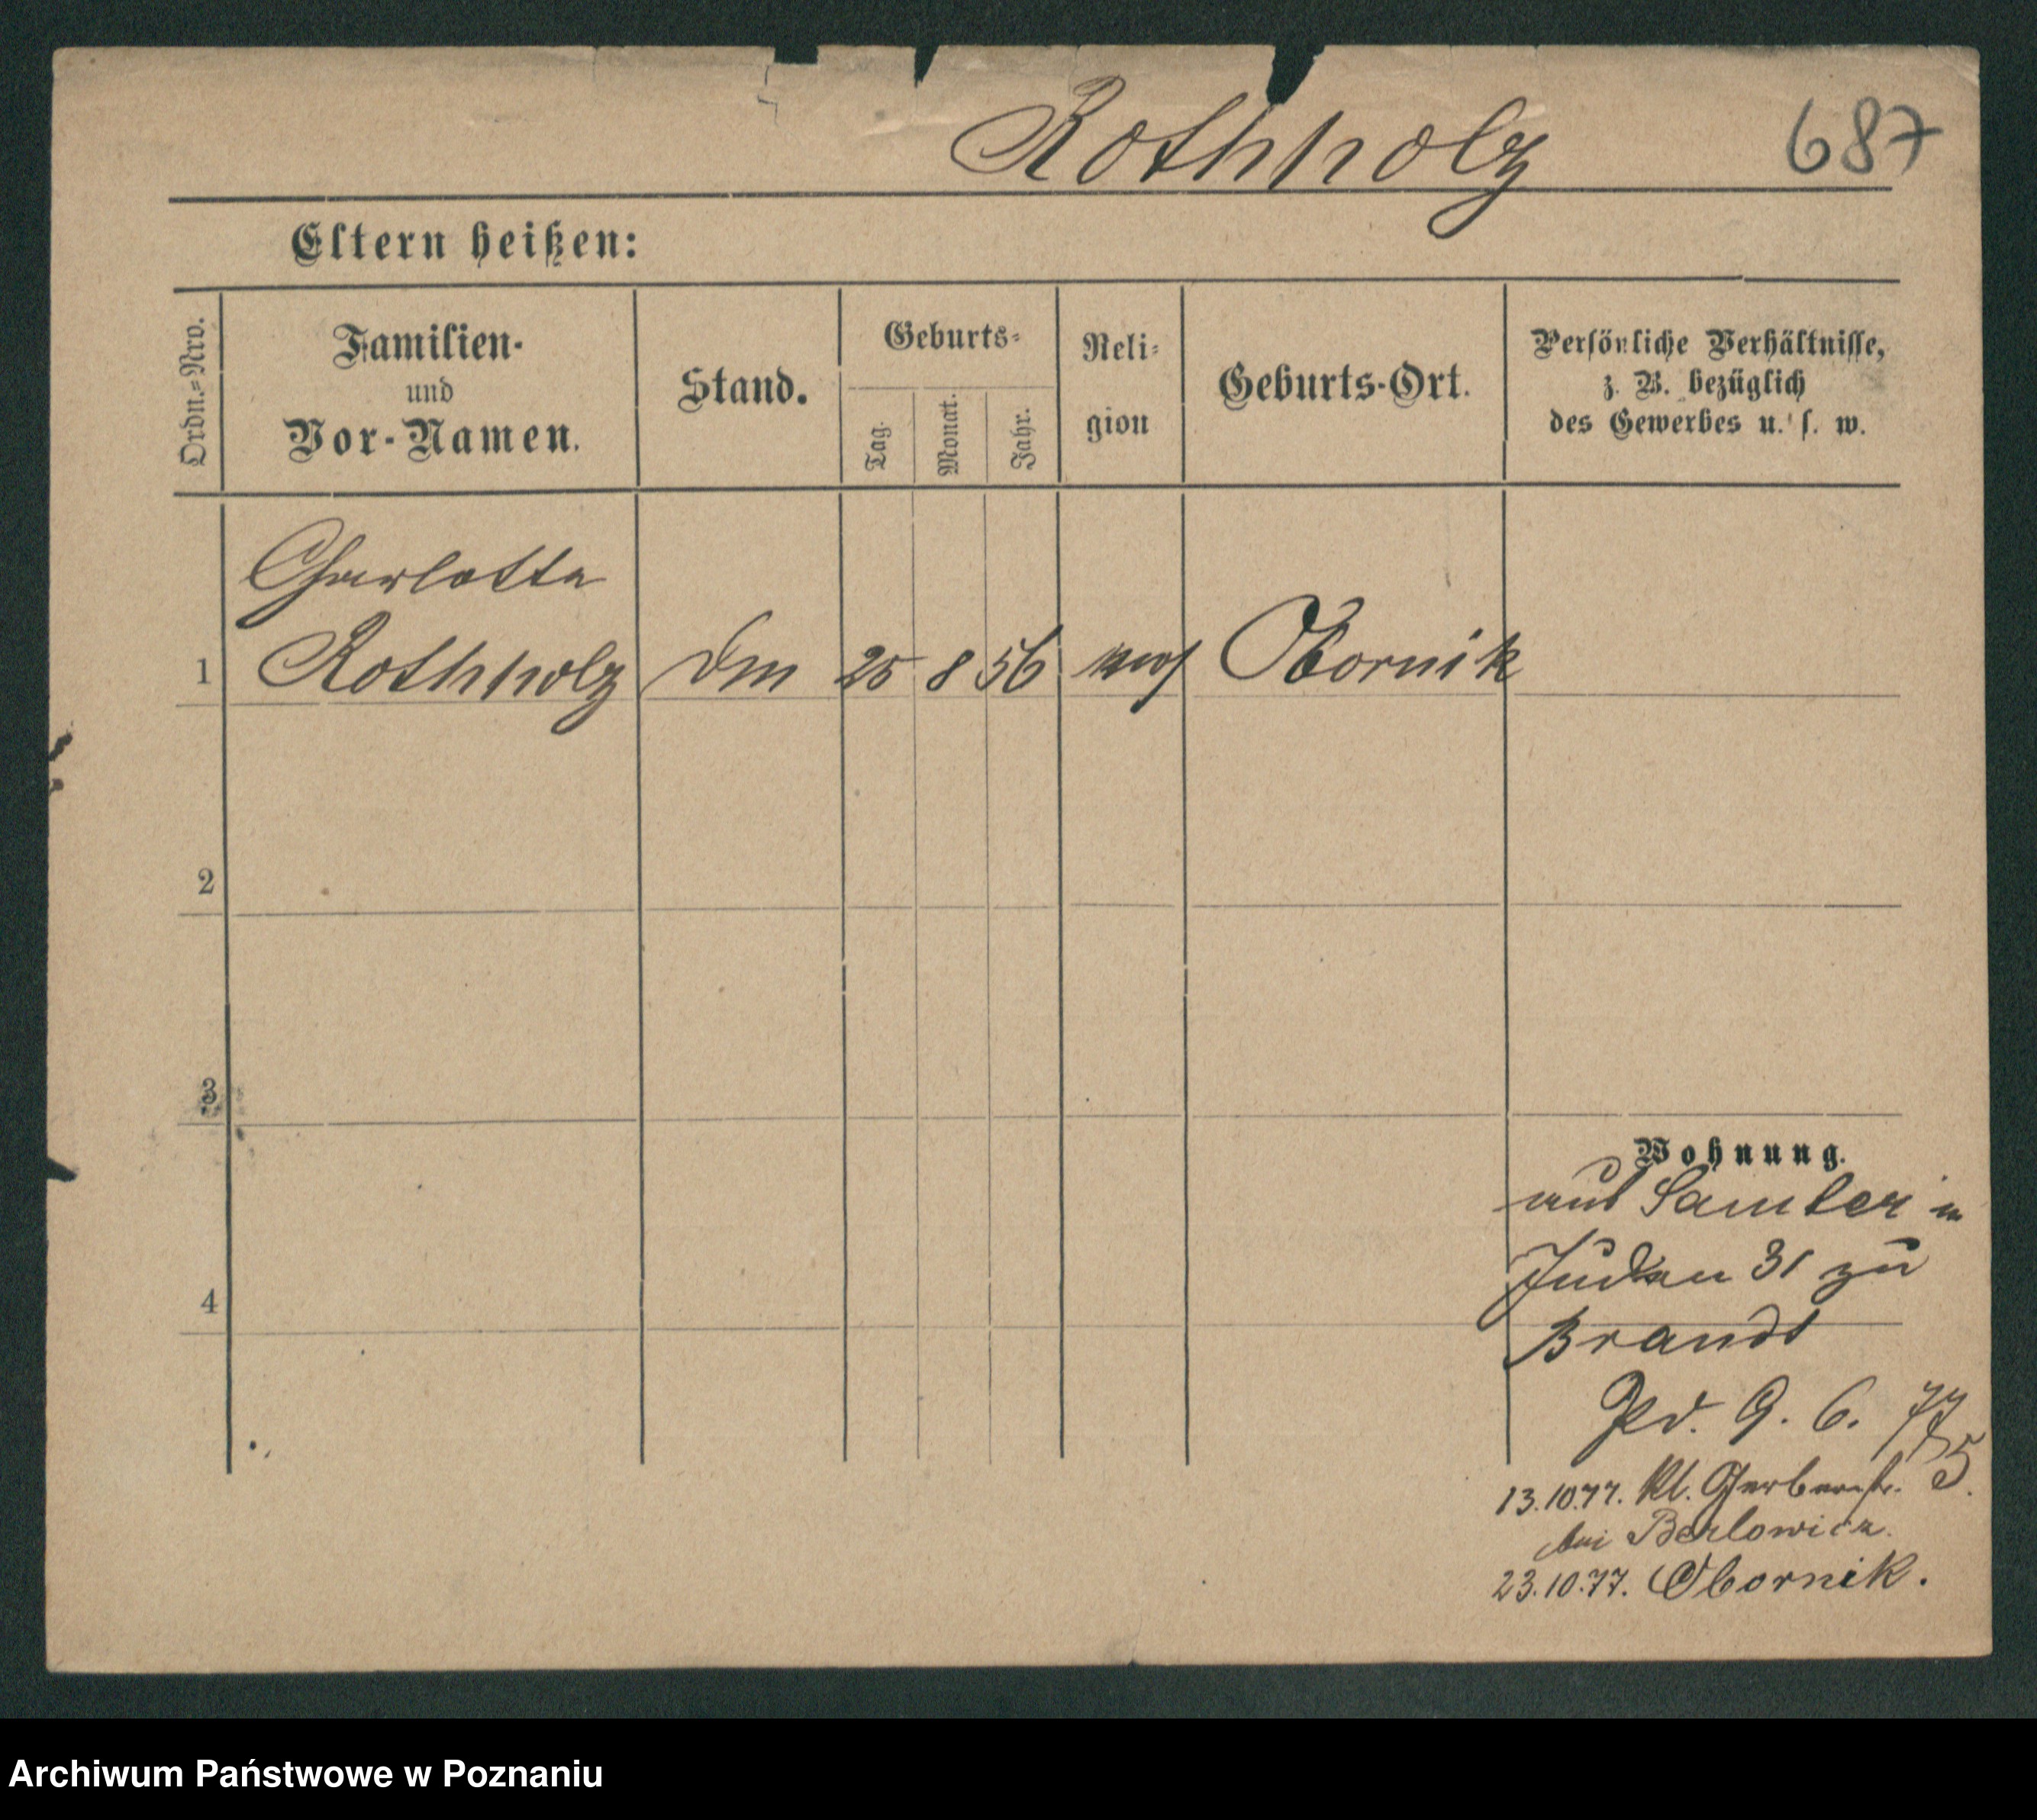 Rothholz 687
Eltern heißen:
Ordn.-Nro.
Familien-
und
Vor-Namen.
Stand.
Geburts-
Tag.
Monat.
Jahr.
Reli-
gion
Geburts-Ort.
Persönliche Verhältnisse,
z. B. bezüglich
des Gewerbes u. s. w.
Charlotte
1 Rothholz 25 8 56 mos Obornik
2
3
4
Wohnung.
aus Samter in
Juden 31 zu
Brandt
9. 6. 77
13.10.77. Kl. Gerberstr. 5.
bei Berlowicz.
23.10.77. Obornik.
Archiwum Państwowe w Poznaniu